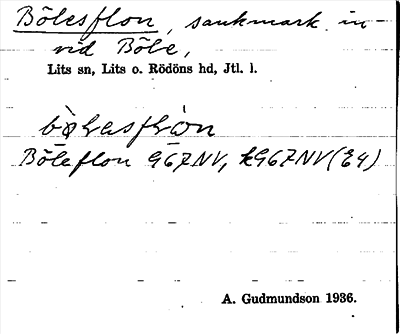 Bölesflon, sankmark in-
vid Böle,
Lits sn, Lits o. Rödöns hd, Jtl. l.
Böleflon 967NV, k967NV(E4)
A. Gudmundson 1936.